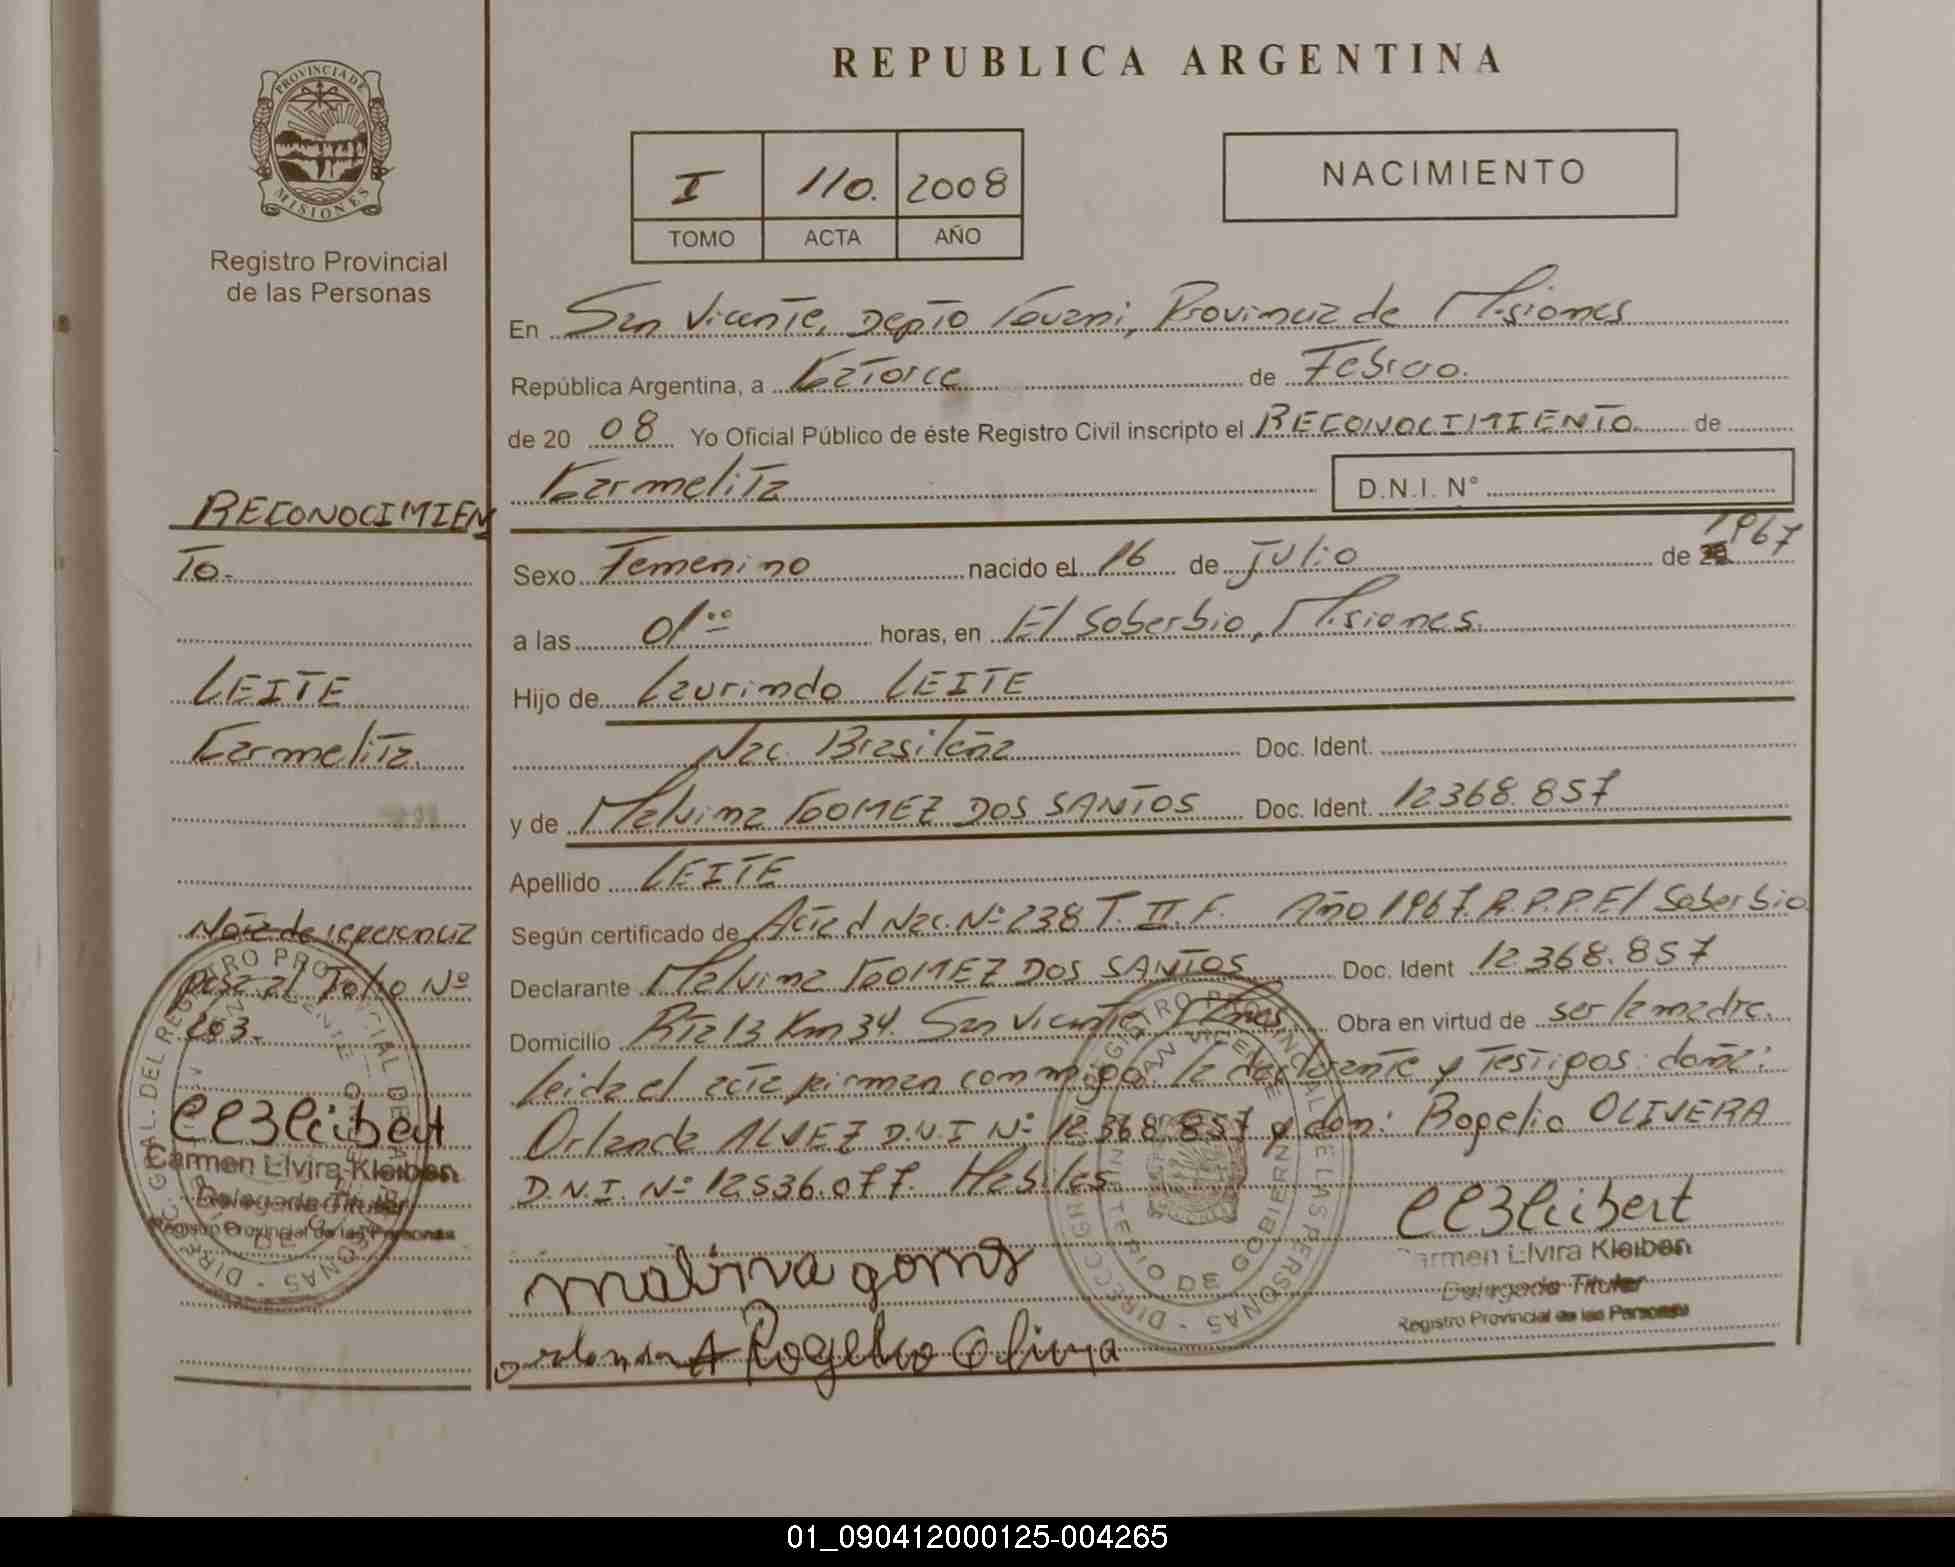 REPUBLICA ARGENTINA
PROVINCIA DE
MISIONES
Registro Provincial
de las Personas
I 110. 2008
TOMO ACTA AÑO
NACIMIENTO
En San Vicente, Depto Guarani, Provincia de Misiones
República Argentina, a Catorce de Febrero.
de 20 08 Yo Oficial Público de éste Registro Civil inscripto el RECONOCIMIENTO de
Carmelita D.N.I. N°
RECONOCIMIEN
To.
LEITE
Carmelita.
Sexo Femenino nacido el 16 de Julio de 1967
a las 01.00 horas, en El Soberbio, Misiones.
Hijo de Laurindo LEITE
Nac. Brasileña Doc. Ident.
y de Malvina GOMEZ DOS SANTOS Doc. Ident. 12368.857
Apellido LEITE
Según certificado de Acta d Nac. N° 238 T. II. F. Año 1967. R.P.P. El Soberbio
Declarante Malvina GOMEZ DOS SANTOS Doc. Ident 12.368.857
Domicilio Rta 13 Km 34. San Vicente, Mnes. Obra en virtud de ser la madre.
Leida el acta firman conmigo la declarante y Testigos: doña:
Orlanda ALVEZ D.N.I N° 12.368.857 y don: Rogelio OLIVERA
D.N.I. N° 12536.077. Habiles
Nota de referencia
pasa al Folio N°
203.
Carmen Elvira Kleiben
Delegada Titular
Registro Provincial de las Personas
malvina gomes
Rogelio Olivera
Carmen Elvira Kleiben
Delegada Titular
Registro Provincial de las Personas
01_090412000125-004265